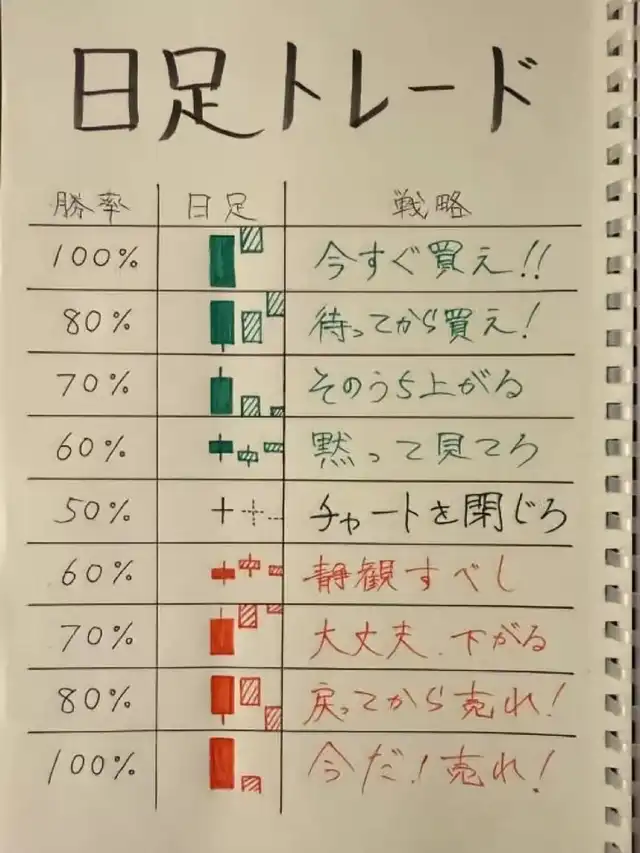 日足トレード
勝率 日足 戦略
100% 今すぐ買え!!
80% 待ってから買え!
70% そのうち上がる
60% 黙って見てろ
50% チャートを閉じろ
60% 静観すべし
70% 大丈夫.下がる
80% 戻ってから売れ!
100% 今だ!売れ!